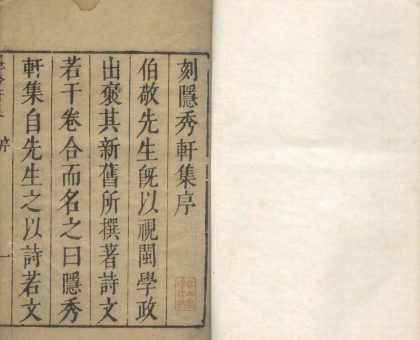 刻隱秀軒集序
伯敬先生既以視閩學政
出裒其新舊所撰著詩文
若干卷合而名之曰隱秀
軒集自先生之以詩若文
序